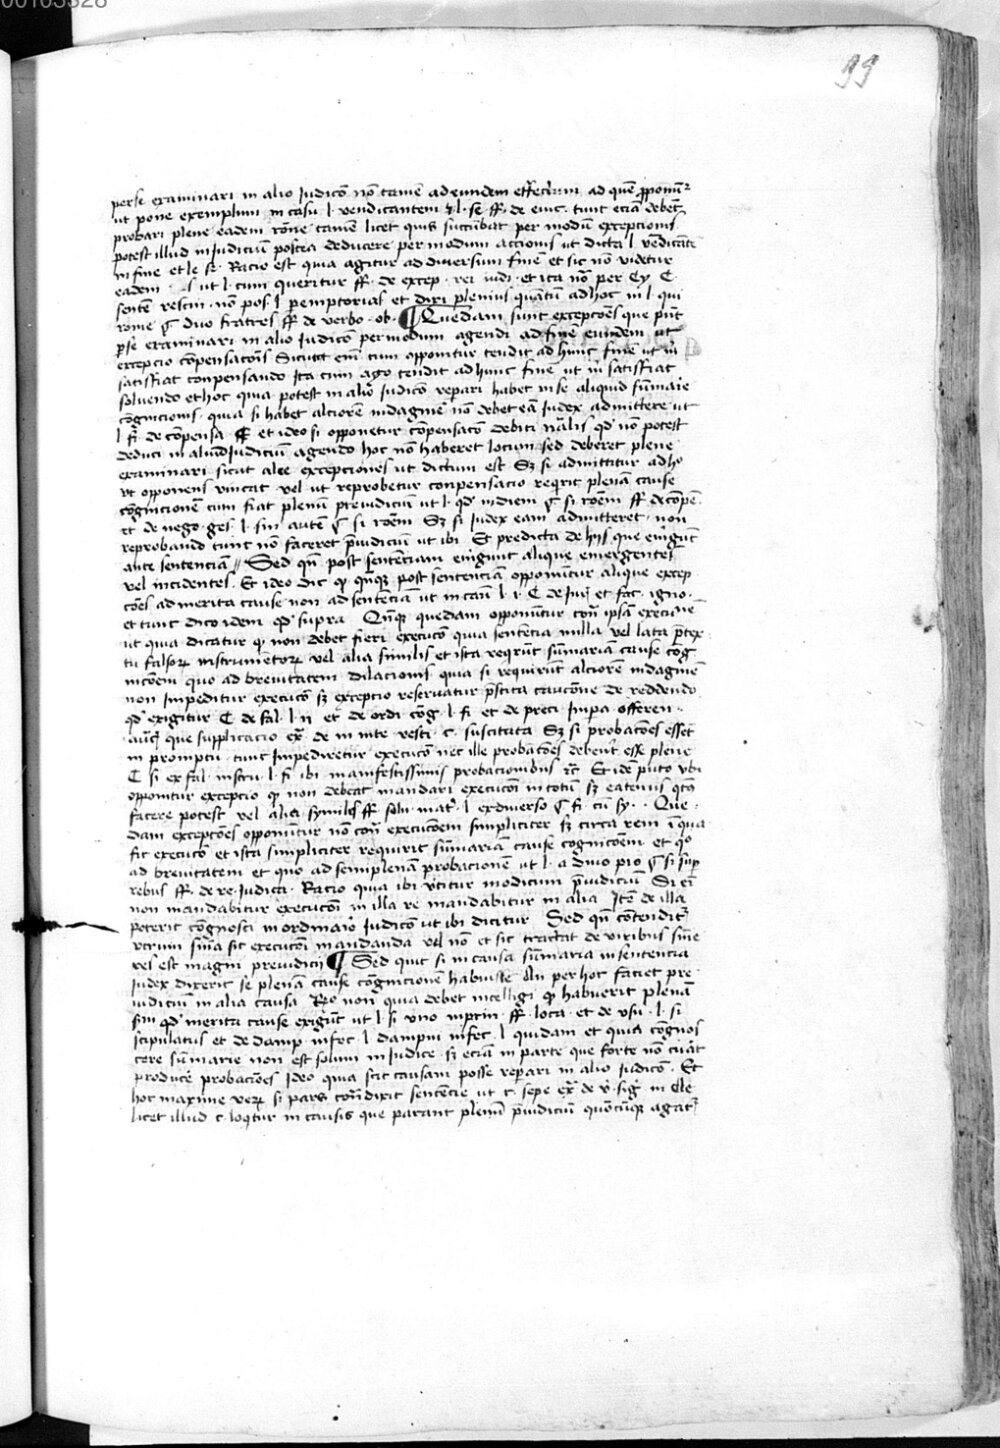 00103328
99
perse examinari in alio Iudicō nō tamē ad eundem effectum ad quē ꝓponūt͛
ut pone exemplum in casu l. vendicantem et l. se ff. de euic. tunc eciā debēt
probari plene eadem rōne tamē licet quis succūbat per modū excepcionis
potest illud in Iudiciū postea deducere per modum accionis ut dicta l. vēdicātē
in fine et le se. Racio est quia agitur ad diuersum finē et sic nō videtur
eadem ut l. cum queritur ff. de excep. rei iudi. et ita no͛ per Cy C.
sentē rescin. non pos. l. peremptorias et dixi plenius quātū ad hoc in l. qui
rome § duo fratres ff. de verbo. ob. ¶ Quedam sunt excepcōes que pn̄t
per se examinari in alio Iudicō per modum agendi ad finē eundem ut
excepcio cōpensacōis Sicut em̄ cum opponitur tendit ad hunc finē ut m̄
satisfiat conpensando Ita cum ago tendit ad hunc finē ut m̄ satisfiat
soluendo et hoc quia potest in alio Iudicō repari habet in se aliquid sūmarie
cōgnicionis quia si habet alciorē indaginē nō debet eā Iudex admittere ut
l. fi. de cōpensa. ff. et ideo si opponetur cōpensacō debiti n̄alis qd̄ nō potest
deduci in aliud Iudiciū agendo hoc nō haberet locum sed deberet plene
examinari sicut alee excepciones ut dictum est Sz si admittitur ad ho
ut opponens vincat vel ut reprobetur conpensacio reqrit plenā cause
cōgnicionē cum fiat plenū preiudiciū ut l. qd̄ in diem § si rōem ff. de cōpē.
et de nego. ges. l. sin autē § si rōem Sz si Iudex eam admitteret non
reprobando tunc nō faceret p̄iudiciū ut ibi. Et predicta de hijs que emgūt
ante sentenciā // Sed qn̄ post sentenciam emgunt alique emergentes
vel incidentes. Et ideo dic q̄ qn̄q post sentenciam opponūtur alique excep
cōes ad merita cause non ad sentenciā ut in cau l. i. C. de Iur͛ et fac. igno.
et tunc dico idem qd̄ supra Qn̄q quedam opponūtur cont͛ ipsā execucōē
ut quia dicatur q̄ non debet fieri execucō quia sentencia nulla vel lata p̄tex
tu falsoꝝ instrumētoꝝ vel alia similis et ista reqrūt sūmariā cause cōg
nicōem quo ad breuitatem dilacionis quia si requirūt alciorē indaginē
non Impeditur execucō sz excepcio reseruatur p̄stita caucōne de reddendo
qd̄ exigitur C. de fal. l. ii et de ordi cōg. l. fi et de preci. Impa. offeren.
aut͛ que supplicacio ex͛ de in inte resti. c. suscitata Sz si probacōes essēt
in promptu tunc Impediretur execucō nec ille probacōes debent esse plene
C. si ex fal. instru. l. fi ibi manifestissimis probacionibus et͛c Et idē puto ubi
opponitur excepcio q̄ non debeat mandari execucōi in totū sz eatenus qt͛o
facere potest vel alia similis ff. solu. mat͛. l. ex diuerso § fi. cū sy. Que
dam excepcōes opponūtur nō cont͛ execucōem simpliciter sz circa rem ī qua
fit execucō et ista simpliciter requirit sūmariā cause cognicōem et q̊
ad breuitatem et quo ad semiplenā probacionē ut l. a diuo pio § si sup
rebus ff. de re Iudica. Racio quia ibi v͛titur modicum p̄iudiciū Si em̄
non mandabitur execucōi in illa re mandabitur in alia Itē de illa
poterit cōgnosci in ordinario Iudicō ut ibi dicitur Sed qn̄ cōtendit͛
utrum sn̄ia sit execucōi mandanda vel nō et sic tractat de viribus sn̄ie
vel est magni preiudicij ¶ Sed quit si in causa sūmaria in sentencia
Iudex dixerit se plenā cause cōgnicionē habuisse An per hoc faciet pre
iudiciū in alia causa Ro non quia debet intelligi q̄ habuerit plenā
fm̄ qd̄ merita cause exigūt ut l. si vno in prin. ff. loca. et de vsu. l. si
stipulatus et de damp. infec. l. dampni infec. l. quidam et quia cōgnos
cere sūmarie non est solum in Iudice sz eciā in parte que forte nō curat
producē probacōes Ideo quia scit causam posse repari in alio Iudicō. Et
hoc maxime veꝝ si pars cont͛dixit sentencie ut c. sepe ex͛ de v. sig. in cle
licet illud c. loqtur in causis que parant plenū p̄iudiciū quōcūqz agat͛